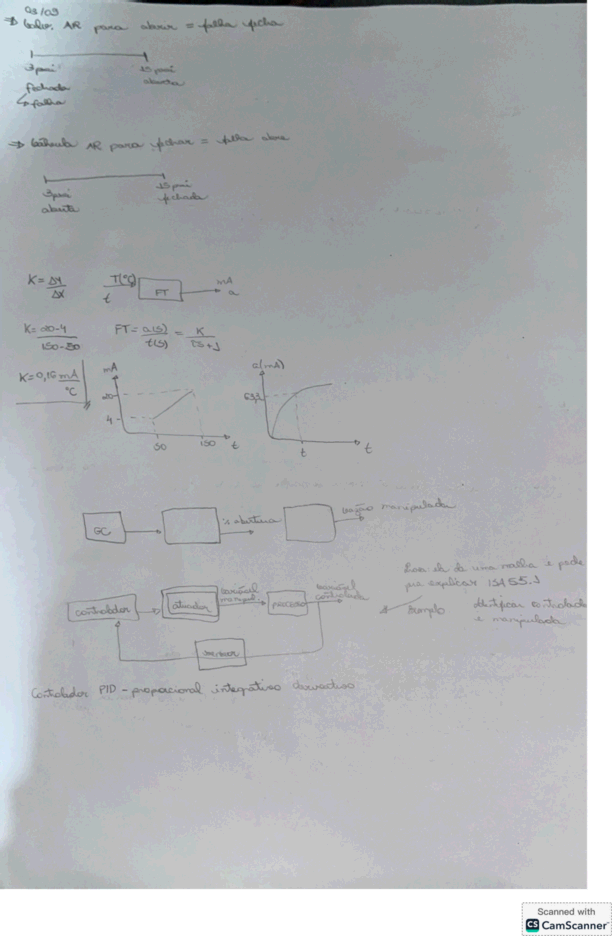 03/09
AR para abrir = falha fecha
3 psi 15 psi
fechada aberta
falha
Válvula AR para fechar = falha abre
3 psi 15 psi
aberta fechada
K = Δy/Δx T(°C) FT mA
t a
K = 20-4/150-50 FT = a(s)/t(s) = K/τs+1
K = 0,16 mA/°C
mA
20
4
50 150 t
a(mA)
63,2
t t
GC % abertura vazão manipulada
controlador atuador variável manipul. processo variável controlada
sensor
Ela dá uma malha e pede
pra explicar ISA 5.5.1
Exemplo identificar controlada
e manipulada
Controlador PID - proporcional integrativo derivativo
Scanned with
CS CamScanner